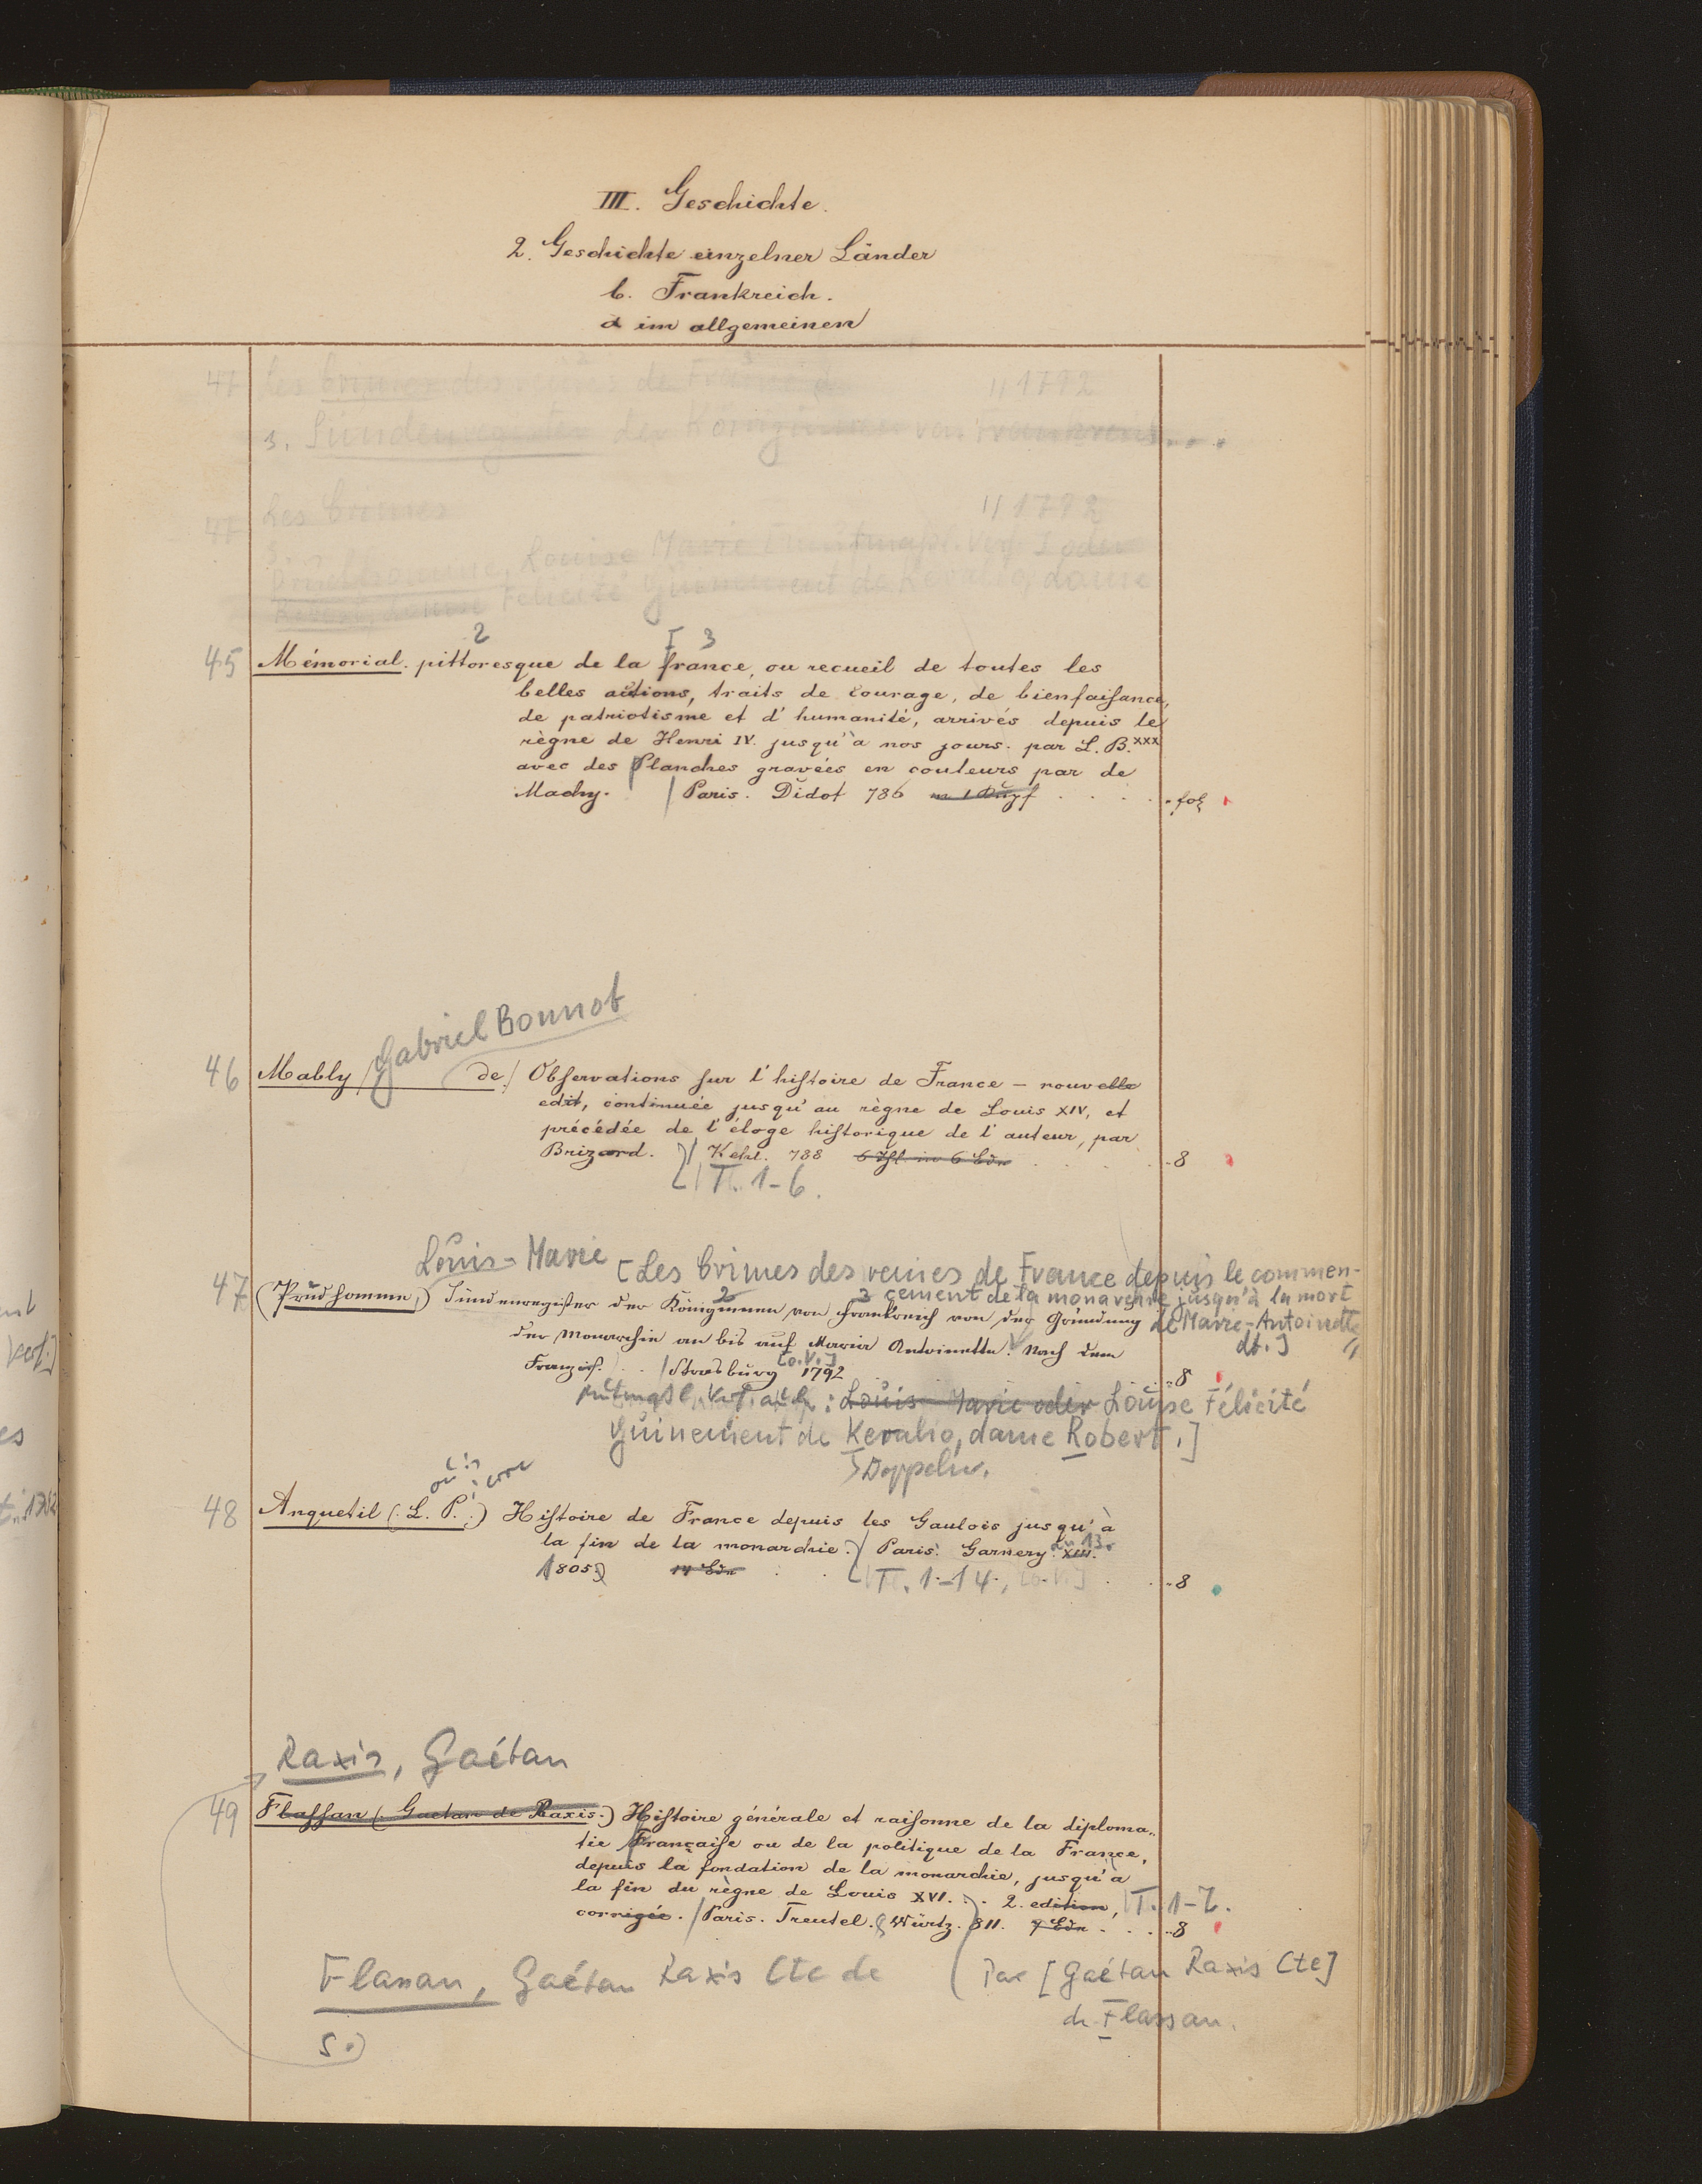 III. Geschichte.
2. Geschichte einzelner Länder
b. Frankreich.
α im allgemeinen
47 Les Crimes des reines de France // 1792
s. Sündenregister der Königinnen von Frankreich...
47 Les Crimes // 1792
s.
Prudhomme, Louise Marie I oder
Robert, Louise Félicité Guinement de Keralio, dame
2 3
45 Mémorial pittoresque de la france, ou recueil de toutes les
belles actions, traits de courage, de bienfaisance,
de patriotisme et d' humanité, arrivés depuis le
règne de Henri IV. jusqu'à nos jours. par L. B. xxx
avec des Planches gravées en couteurs par de
Machy. / Paris. Didot 786 . . . . fol
Gabriel Bonnot
46 Mably / de / Observations sur l'histoire de France – nouvelle
edit, continuée jusqu'au règne de Louis XIV, et
précédée de l'éloge historique de l'auteur, par
Brizard. / Kehl. 788 6 Thl. in 6 Bdn . . . . 8
T. 1-6.
Louis-Marie [Les Crimes des reines de France depuis le commen-
cement de la monarchie jusqu'à la mort
de Marie-Antoinette
dt.]
47 (Prudhomme,) Sündenregister der Königinnen von Frankreich von der Gründung
der Monarchie an bis auf Maria Antoinetta. Nach dem
Französ. . . / Strasburg [o.V.] 1792 . . 8
Mutmassl. Verf. auch: Louis Marie oder Louise Félicité
Guinement de Keralio, dame Robert.]
Doppelw.
ouis ierre
48 Anquetil (. L. P. .) Histoire de France depuis les Gaulois jusqu'à
la fin de la monarchie. / Paris. Garnery. XIII. an 13.
1805 14 Bdn . . T. 1-14, [o.V.] . . . 8
Raxis, Gaétan
49 Flassan (. Gaetan de Raxis.) Histoire générale et raisonne de la diploma-
tie Française ou de la politique de la France,
depuis la fondation de la monarchie, jusqu'a
la fin du règne de Louis XVI. . . 2. edition, T. 1-7.
corrigée. / Paris. Treutel. & Würtz. 811. 7 Bdn . . . . 8
Flassan, Gaétan Raxis Cte de
Par [Gaétan Raxis Cte]
de Flassan.
s.